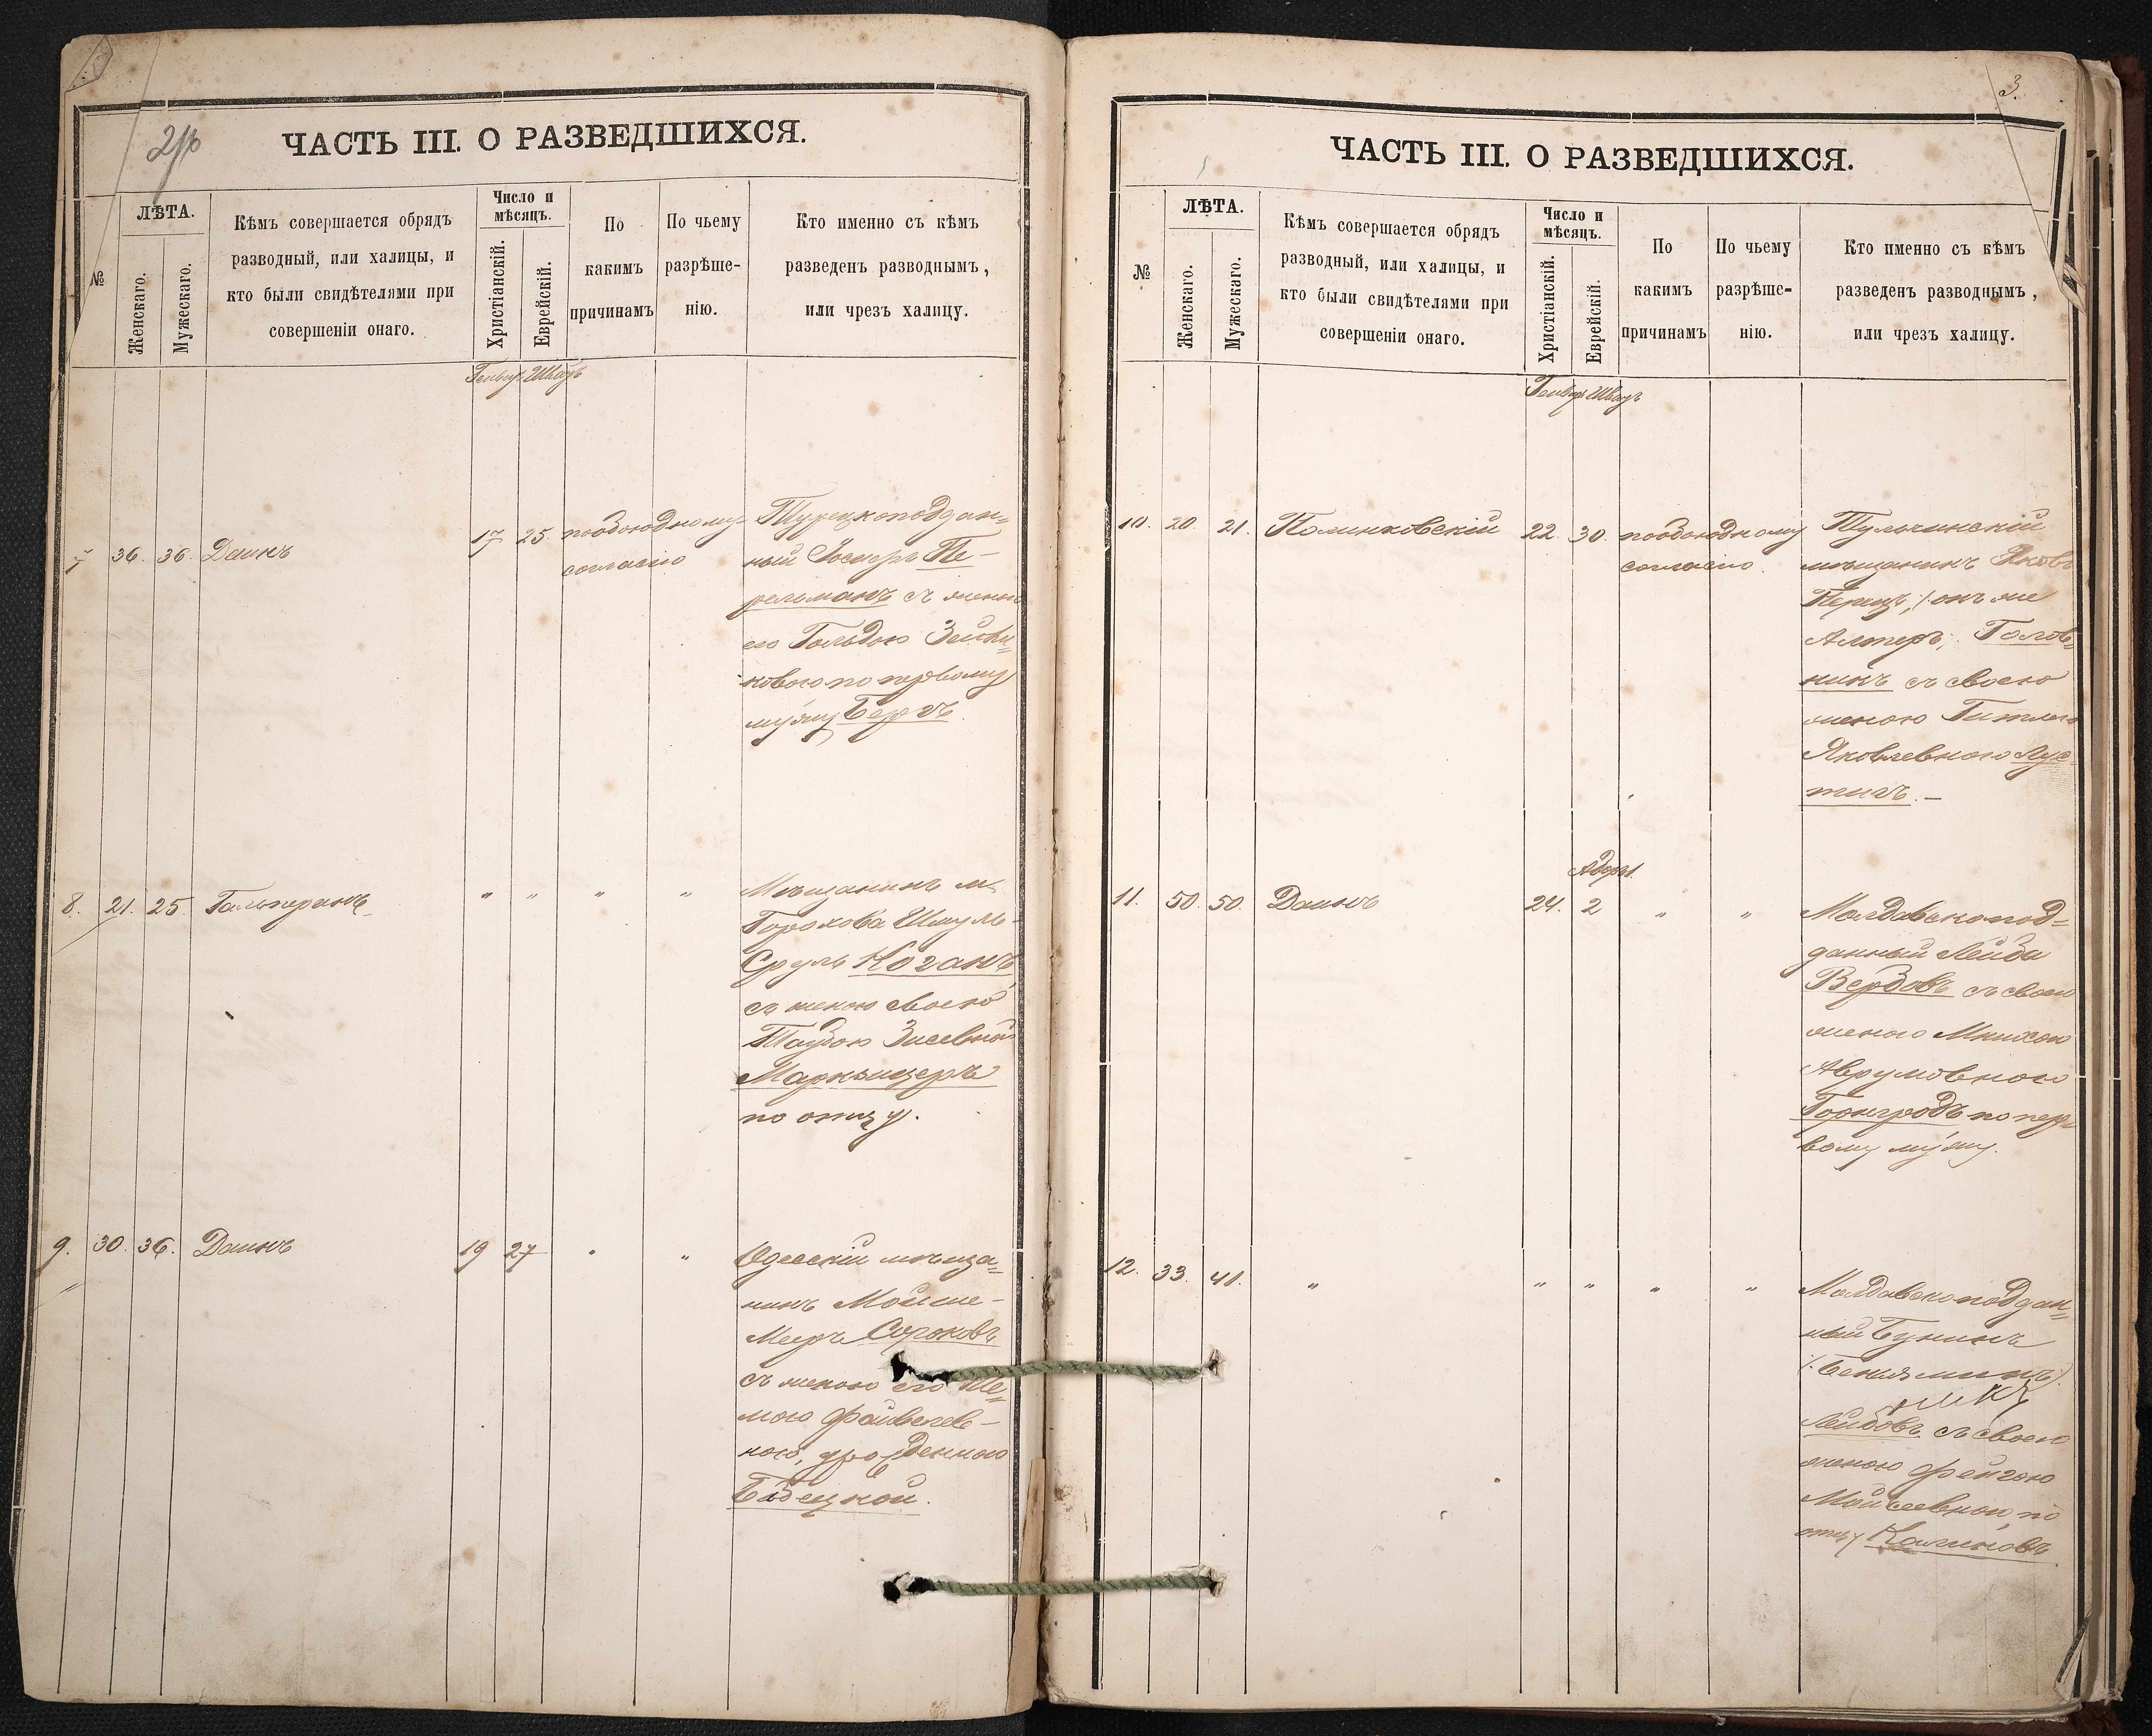 2/р
ЧАСТЬ III. О РАЗВЕДШИХСЯ.
№
ЛѢТА.
Женскаго.
Мужескаго.
Кѣмъ совершается обрядъ
разводный, или халицы, и
кто были свидѣтелями при
совершеніи онаго.
Число и
мѣсяцъ.
Христіанскій.
Еврейскій.
По
какимъ
причинамъ
По чьему
разрѣше-
нію.
Кто именно съ кѣмъ
разведенъ разводнымъ,
или чрезъ халицу.
Генварь Шватъ
7 36. 36. Даинъ 17 25 пообоюдному
согласію
Турецкоподдан=
ный Іосифъ Пе-
рельманъ съ женою
его Гольдою Зейли=
ковою по первому
мужу Бергъ
8. 21. 25. Гальперинъ " " " "
Мѣщанинъ м.
Горохова Шмуль-
Сруль Коганъ
съ женою своею
Таубою Зисевной
Маркъщеръ
по отцу.
9. 30. 36. Даинъ 19 27 " "
Одесскій мѣща=
нинъ Мойше-
Меръ Сороковъ
съ женою его Не=
мою Файвелев-
ною, урожденною
Бѣдецкой.
3.
ЧАСТЬ III. О РАЗВЕДШИХСЯ.
№
ЛѢТА.
Женскаго.
Мужескаго.
Кѣмъ совершается обрядъ
разводный, или халицы, и
кто были свидѣтелями при
совершеніи онаго.
Число и
мѣсяцъ.
Христіанскій.
Еврейскій.
По
какимъ
причинамъ
По чьему
разрѣше-
нію.
Кто именно съ кѣмъ
разведенъ разводнымъ,
или чрезъ халицу.
Генварь Шватъ
10. 20. 21. Полинковскій 22. 30. пообоюдному
согласію.
Тульчинскій
мѣщанинъ Яковъ
Перецъ, /:онъ же
Алтеръ, Голов=
нинъ съ своею
женою Гитлею
Яковлевною Лус=
тигъ.-
Адаръ 1.
11. 50. 50. Даинъ 24. 2 " "
Молдавскопод-
данный Лейба
Вербовъ съ своею
женою Минцою
Аврумовною
Горнгродъ по пер
вому мужу.
12. 33. 41. " " " " "
Молдавскоподдан=
ный Бунинъ
/:Беньяминъ/
Лейбовъ съ своею
женою Фейгою
Мойсеевной, по
отцу Калиновъ